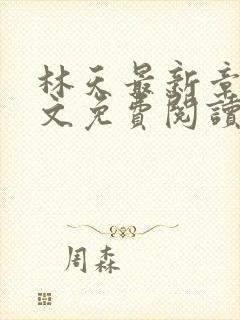 林天最新章
文免費閱讀
周森